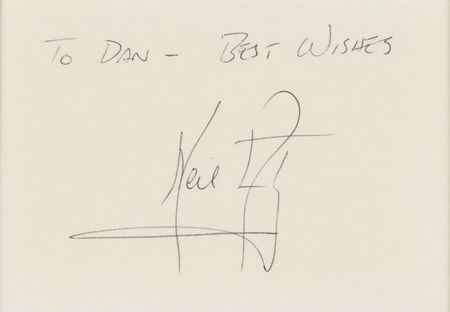 To Dan - Best Wishes
Neil